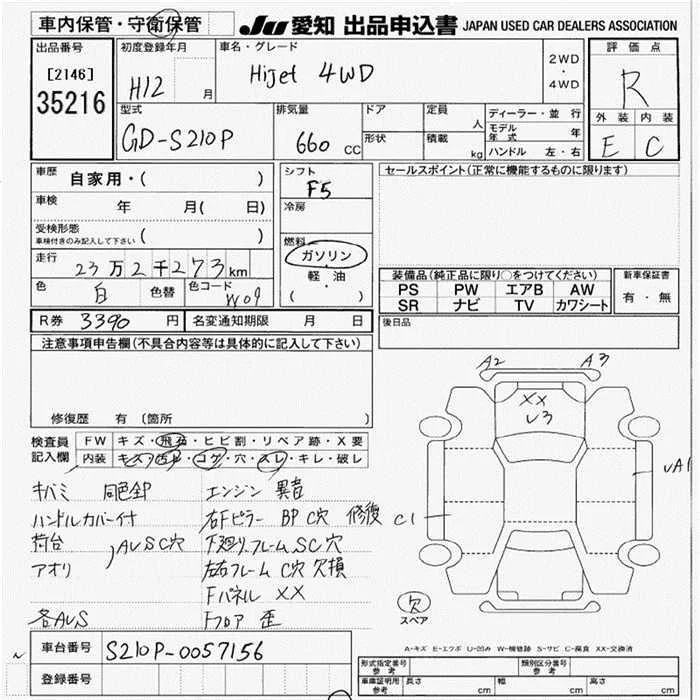 車内保管・守衛保管
JU 愛知 出品申込書 JAPAN USED CAR DEALERS ASSOCIATION
出品番号
[2146]
35216
初度登録年月
H12 月
車名・グレード
Hijet 4WD
2WD
・
4WD
評価点
R
外装 内装
E C
型式
GD-S210P
排気量
660 cc
ドア
形状
定員
人
積載
kg
ディーラー・並行
モデル年式 年
ハンドル 左・右
車歴
自家用・( )
車検
年 月( 日)
受検形態
車検付きのみ記入して下さい ( )
走行
23万2千273km
色
白
色替
色コード
W09
シフト
F5
冷房
燃料
ガソリン
・
軽・油
( )
セールスポイント(正常に機能するものに限ります)
装備品(純正品に限り○をつけてください)
PS PW エアB AW
SR ナビ TV カワシート
新車保証書
有・無
R券 3390 円
名変通知期限 月 日
後日品
注意事項申告欄(不具合内容等は具体的に記入して下さい)
修復歴 有 〔箇所 〕
検査員
記入欄
FW キズ・飛石・ヒビ割・リペア跡・X要
内装 キズ・汚レ・コゲ・穴・スレ・キレ・破レ
キバミ 同色全P エンジン 異音
ハンドルカバー付 右Fピラー BP C穴 修復
荷台 AUSC穴 下廻りフレームSC穴
アオリ 左右フレーム C穴 欠損
Fパネル XX
各AUS Fフロア 歪
A2 A3
XX
U3
UA1
C1
欠
スペア
A-キズ E-エクボ U-凹み W-補修跡 S-サビ C-腐食 XX-交換済
車台番号
S210P-0057156
登録番号
形式指定番号
参考
類別区分番号
参考
車庫証明用
参考
長さ cm 幅 cm 高さ cm